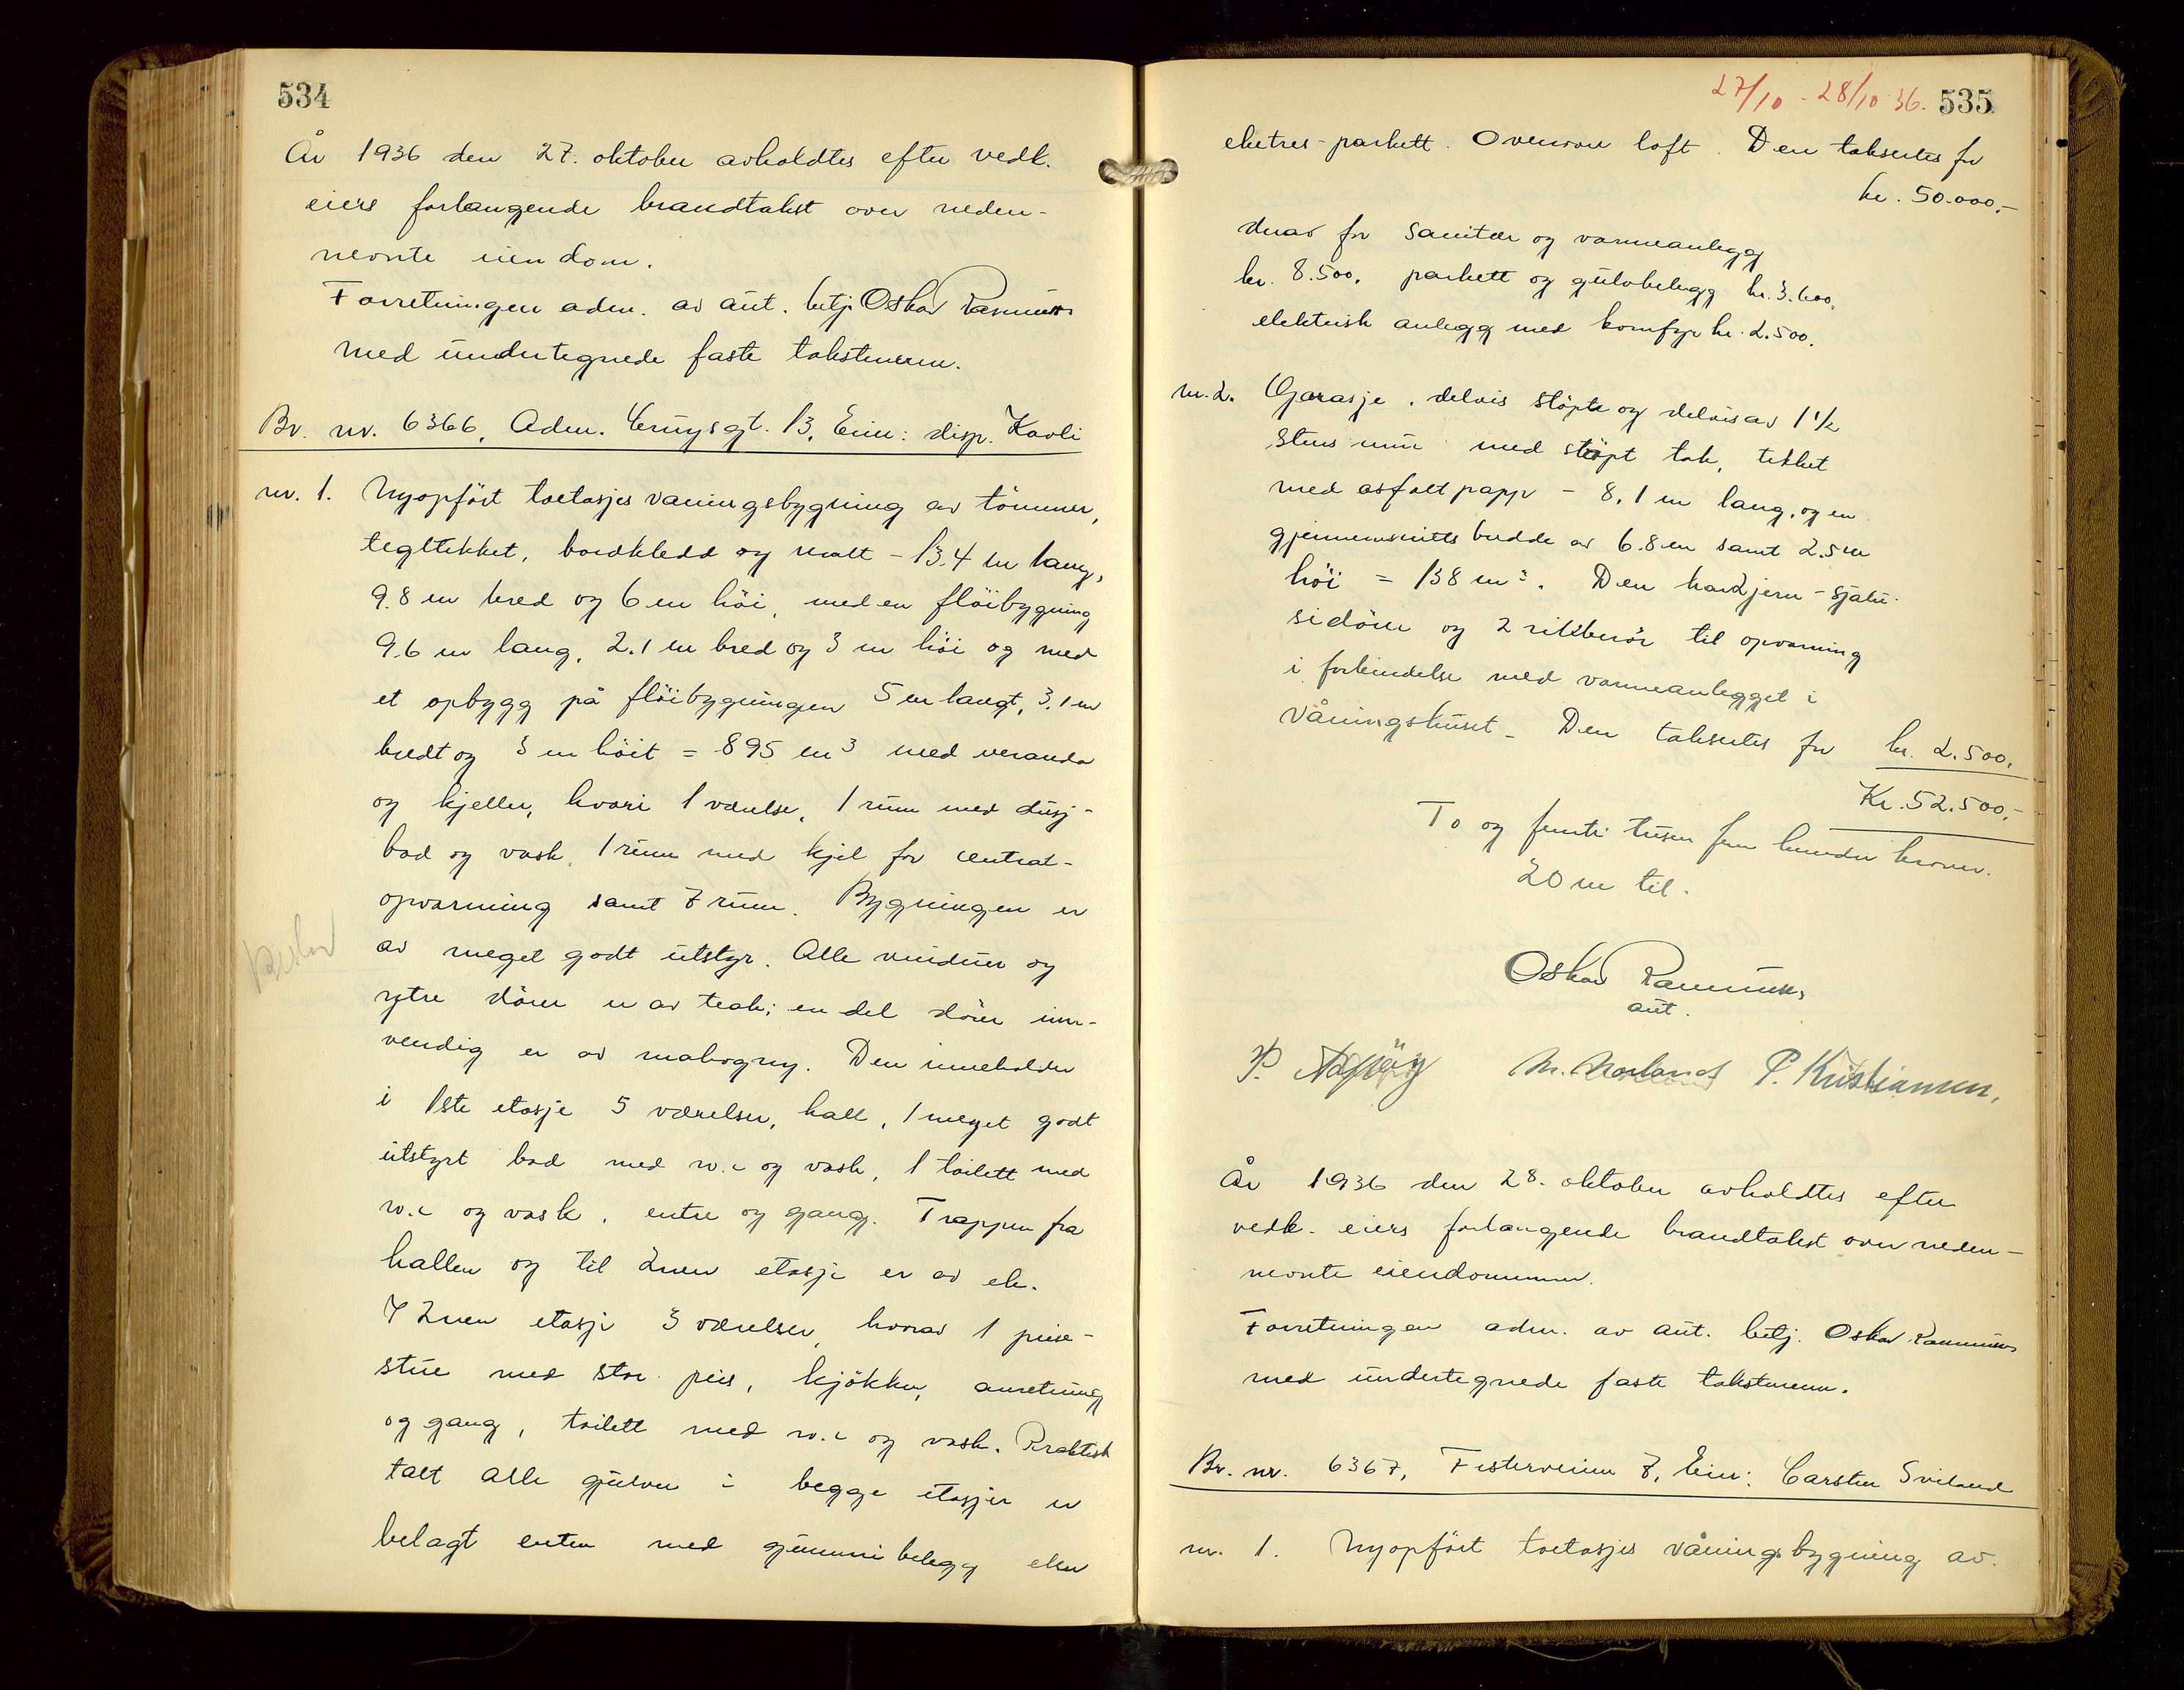 534
År 1936 den 27. oktober avholdtes efter vedk.
eiers forlangende brandtakst over neden-
nevnte eiendom.
Forretningen adm. av aut. betj. Oskar Rasmussen
med undertegnede faste takstmenn.
Br. nr. 6366, Adm. Cruysgt. 13, Eier: disp. Kavli
nr. 1. Nyopført toetasjes våningsbygning av tømmer,
tegltekket, bordkledd og malt - 13.4 m lang,
9.8 m bred og 6 m høi, med en fløibygning
9.6 m lang, 2.1 m bred og 3 m høi og med
et opbygg på fløibygningen 5 m langt, 3.1 m
bredt og 3 m høit = 895 m³ med veranda
og kjeller, hvori 1 værelse, 1 rum med dusj-
bad og vask, 1 rum med kjel for central-
opvarming samt 7 rum. Bygningen er
av meget godt utstyr. Alle vinduer og
ytre dører er av teak; en del dører inn-
vendig er av mahogny. Den inneholder
i 1ste etasje 5 værelser, hall, 1 meget godt
utstyrt bad med w.c og vask, 1 toilett med
w.c og vask, entre og gang. Trappen fra
hallen og til 2nen etasje er av ek.
I 2nen etasje 3 værelser, hvorav 1 peise-
stue med stor peis, kjøkken, anretning
og gang, toilett med w.c og vask. Praktisk
talt alle gulver i begge etasjer er
belagt enten med gummibelegg eller
27/10 - 28/10 36. 535
eketres-parkett. Overover loft. Den takseres for
kr. 50.000,-
derav for sanitær og varmeanlegg
kr. 8.500, parkett og gulvbelegg kr. 3.600,
elektrisk anlegg med komfyr kr. 2.500.
nr. 2. Garasje, delvis støpt og delvis av 1 1/2
stens mur med støpt tak, tekket
med asfaltpapp - 8,1 m lang, og en
gjennemsnitts bredde av 6.8 m samt 2.5 m
høi = 138 m³. Den har 2 jern-sjalu-
sidører og 2 ribberør til opvarming
i forbindelse med varmeanlegget i
våningshuset - Den takseres for kr. 2.500,
Kr. 52.500,-
To og femti tusen fem hundre kroner.
20 m til.
Oskar Rasmussen
aut.
P. M. Norland P. Kristiansen,
År 1936 den 28. oktober avholdtes efter
vedk. eiers forlangende brandtakst over neden-
nevnte eiendommer.
Forretningen adm. av aut. betj. Oskar Rasmussen
med undertegnede faste takstmenn.
Br. nr. 6367, 7, Eier: Carsten Sviland
nr. 1. Nyopført toetasjes våningsbygning av